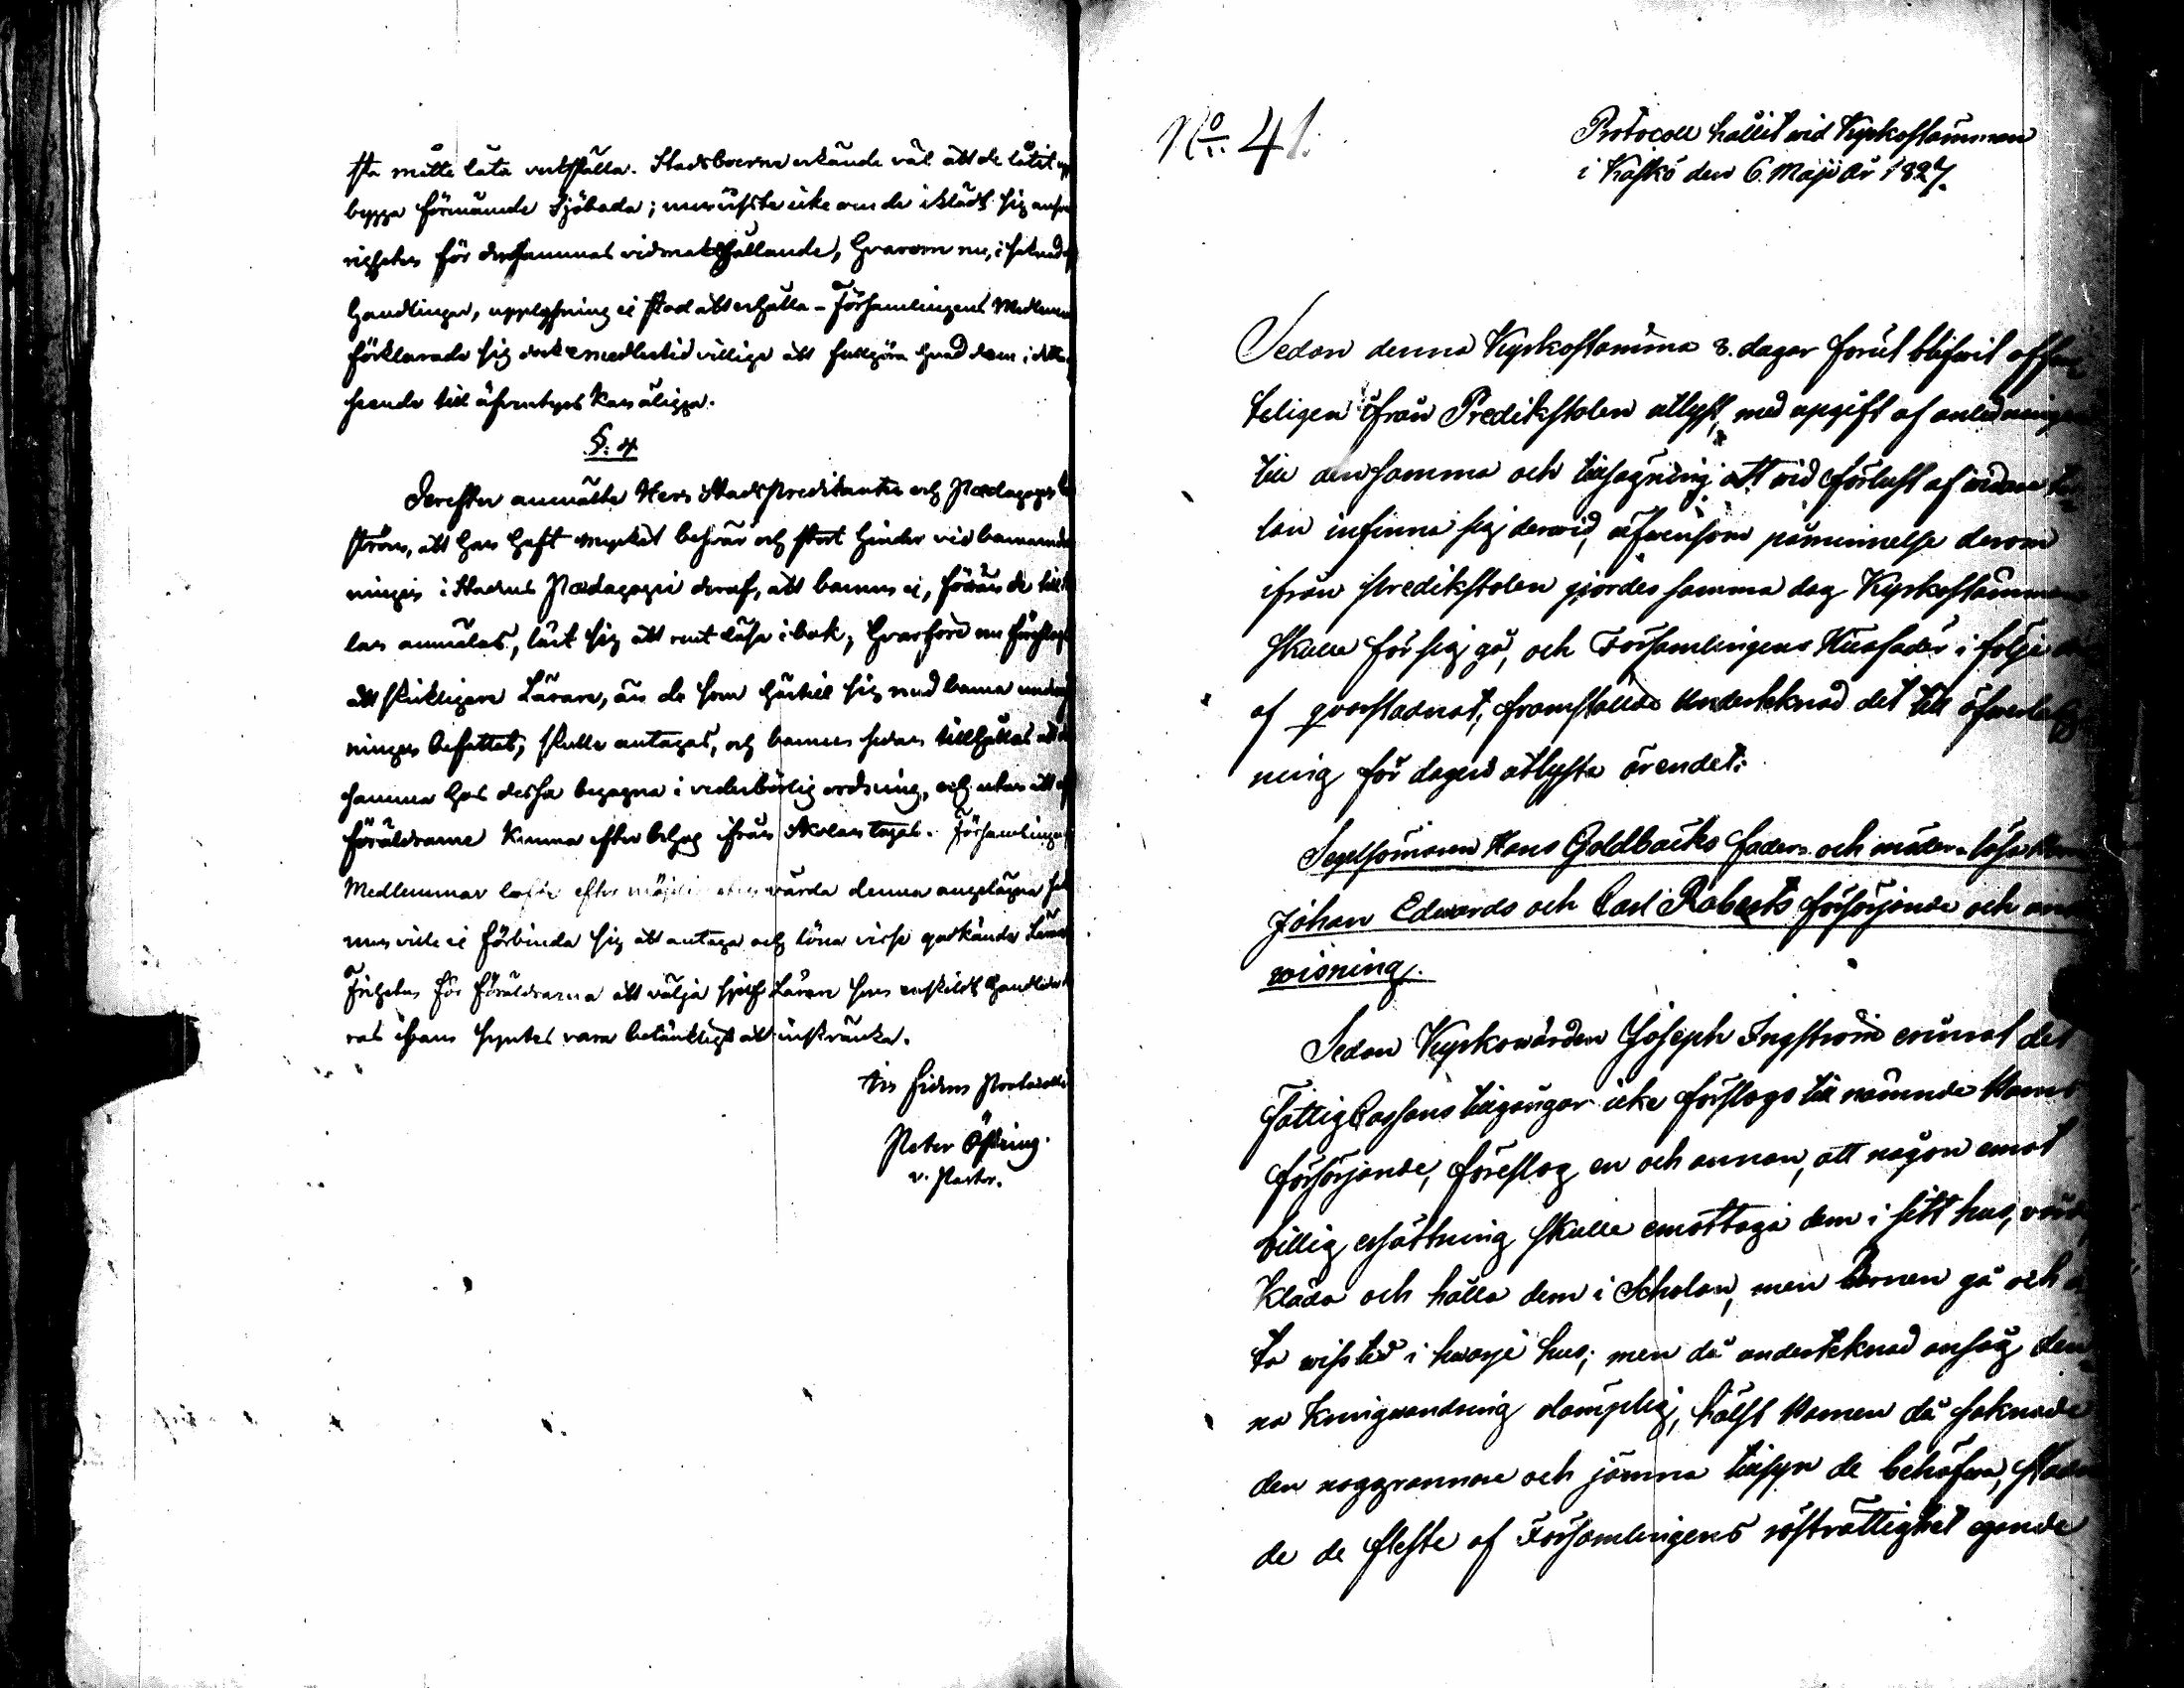 sta måtte låta verkställa. Stadsboerne erkände väl att de låtit upp
bygga förnämde Sjöbada; men visste icke om de iklädt sig
för densammas vidmakthållande, hvarom nu, i saknad af
Handlingar, upplysning ei stod att erhålla - Församlingens Medlemmar
förklarade sig dock emedlertid villige att fullgöra hvad dem i detta
seende till äfventyrs kan åligga.
§. 4
Derefter anmälte Herr Stads Predikanten och Pædagogen
ström, att han haft mycket besvär och stort hinder vid barnaunder
ningen i Stadens Pædagogie deraf, att barnen ei, förrän de till
las anmälas, lärt sig att rent läsa i bok; hvarföre nu föreslogs
att skickligare Lärare, än de som härtills sig med barna undervis
ningen befattat, skulle antagas, och barnen sedan tillhållas att de
samma hos dessa begagna i vederbörlig ordning, och utan att af
föräldrarne kunna efter behag ifrån Skolan tagas. Församlingens
Medlemmar lofte efter vårda denna angelägna sak
men ville ei förbinda sig att antaga och löna visse godkände Lärare
Friheten för föräldrarna att välja sjelf Lärare
syntes vara betänkligt att inskränka.
In fidem Protocolli
Peter Östring
v. Pastor.
No. 41.
Protocoll hållit vid Kyrkostämman
i Kaskö den 6. Maji År 1827.
Sedan denna Kyrkostämma 8. dagar förut blifwit offen
teligen ifrån Predikstolen utlyst, med upgift af anledningen
till densamma och tillsägning att wid förlust af widare ta
lan infinna sig derwid, äfwensom påminnelse derom
ifrån Predikstolen gjordes samma dag Kyrkostämman
skulle för sig gå, och Församlingens Husfäder i följe der
af qvarstadnat, framställde Underteknad det till öfwerlägg
ning för dagen utlysta ärendet:
Segelsömaren Hans Goldbäcks fader- och moder-lösa Barn
Johan Edwards och Carl Roberts försörjande och under
wisning.
Sedan Kyrkowärden Joseph Ingström erinrat det
Fattig Cassans tilgångar icke förslogs till nämnde Barns
försörjande, föreslog en och annan, att någon emot
billig ersättning skulle emottaga dem i sitt hus, vårda,
kläda och hålla dem i Scholan, men Barnen gå och ä
ta wiss tid i hwarje hus; men då undertecknad ansåg den
na kringwandring olämplig, hälst Barnen då saknade
den noggrannare och jämna tillsyn de behöfwa, stadna
de de fleste af Församlingens rösträttighet egande